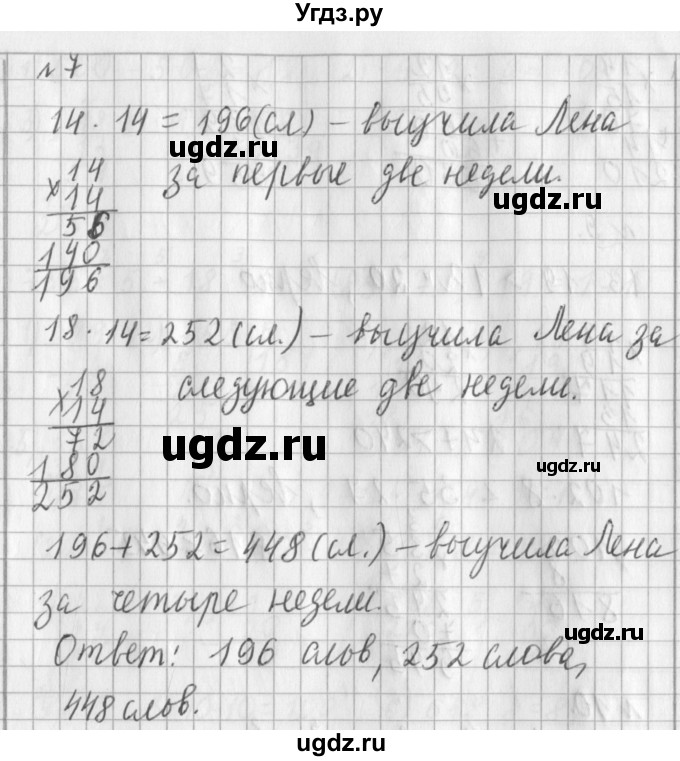 Угдз.ру
№7
14 · 14 = 196 (сл) – выучила Лена
за первые две недели.
14
× 14
56
140
196
18 · 14 = 252 (сл.) – выучила Лена за
следующие две недели.
18
× 14
72
180
252
196 + 252 = 448 (сл.) – выучила Лена
за четыре недели.
Ответ: 196 слов, 252 слова,
448 слов.
ugdz.ru
ugdz.ru
ugdz.ru
ugdz.ru
ugdz.ru
ugdz.ru
ugdz.ru